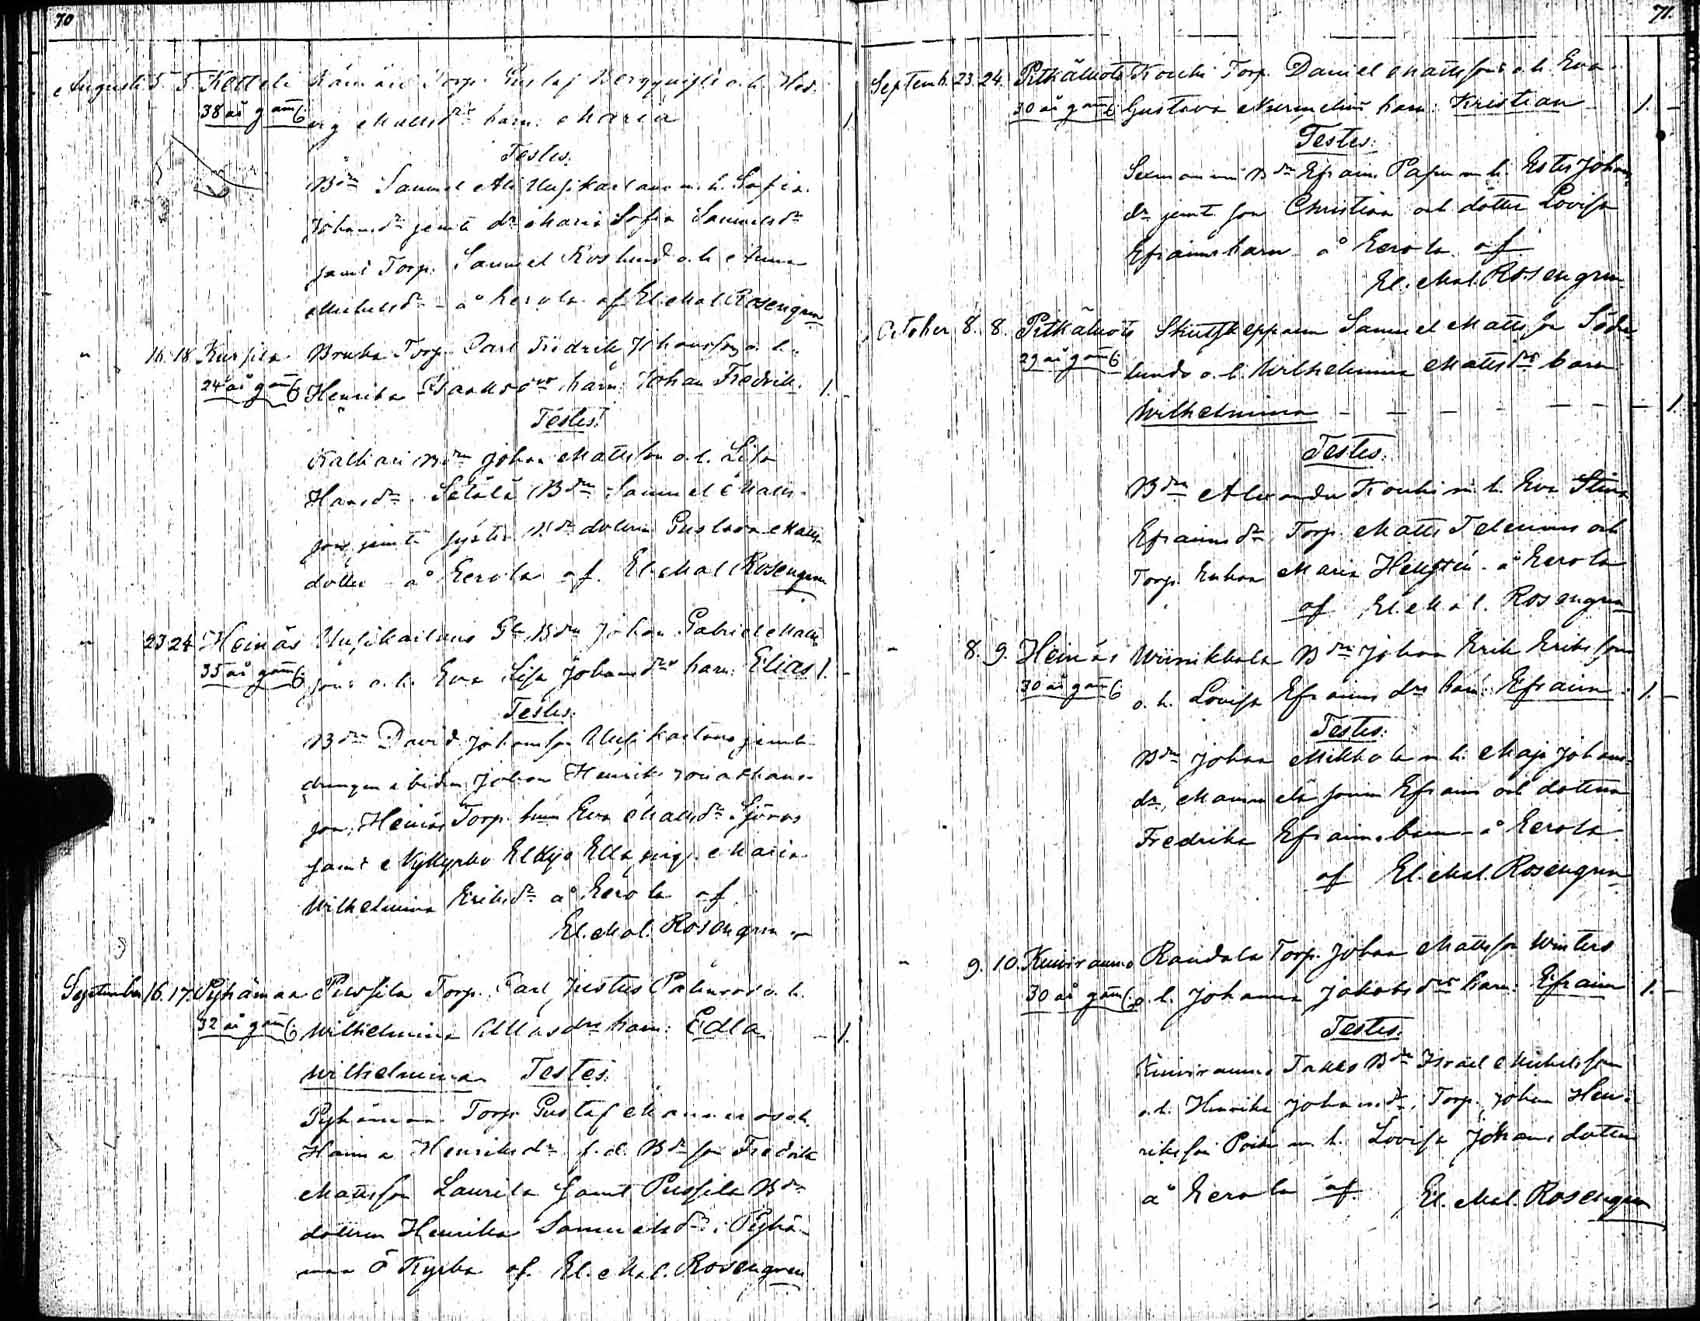 70
Augusti 5. 5. Ketteli Torp. Gustaf Bergqvist o. h. Hed-
38 år gam. vig Mattsdr barn: Maria 1.
Testes:
Bdn Samuel Uusikartano m. h. Sofia
Johansdr jemte dr Maria Sofia Samuelsdr
samt Torp. Samuel Roslund o. h. Anna
Michelsdr - å Eerola af El. Mal. Rosengren
" 16. 18. Kursila Torp. Carl Fredrik Johansson o. h.
24 år gam. Henrika Isaksdr barn: Johan Fredrik. 1.
Testes:
Bdn Johan Mattsson o. h. Lisa
Hansdr. Sälilä Bdn Samuel Matts-
son jemte syster Bdr dottern Gustava Matts-
dotter å Eerola af El. Mal Rosengren
" 23 24 Heinäs Uusikartano Bdn Johan Gabriel Matts-
35 år gam. son o. h. Eva Lisa Johansdr barn: Elias 1.
Testes:
Bdn David Johansson Uusikartano jemte
drengen Johan Henrik Jonathans-
son, Heinäs Torp. Eva Mattsdr
samt Nykyrko Ella pig. Maria
Wilhelmina Eriksdr å Eerola af
El. Mal. Rosengren
September 16. 17. Pyhämaa Pussila Torp. Carl Justus o. h.
32 år gam. Wilhelmina dr barn: Edla 1.
Wilhelmina Testes:
Pyhämaa Torp. Gustaf o. h.
Hanna Henriksdr f. d. Bdn son Fredrik
Mattsson Laurila samt Pussila Bdn
dottern Henrika Samuelsdr i Pyhä-
maa ö Kyrka af El. Mal. Rosengren
71.
Septemb. 23. 24. Pitkäluoto Kouhi Torp. Daniel Mattsson o. h. Eva
30 år gam. Gustava barn: Kristian 1.
Testes:
Bdn Efraim m. h. Ester Johans-
dr jemte son Christian och dotter Lovisa
Efraims barn å Eerola af
El. Mal. Rosengren
October 8. 8. Pitkäluoto Samuel Mattsson Söder-
29 år gam. lund o. h. Wilhelmina Mattsdr barn
Wilhelmina 1.
Testes:
Bdn Alexander Kouhi m. h. Eva Stina
Efraimsdr Torp. Matts och
Torp. Enkan Maria å Eerola
af El. Mal. Rosengren
" 8. 9. Heinäs Wiinikkala Bdn Johan Erik Eriksson
30 år gam. o. h. Lovisa Efraims dr barn: Efraim 1.
Testes:
Bdn Johan Mikkola m. h. Maja Johans-
dr, sonen Efraim och dottern
Fredrika Efraims barn å Eerola
af El. Mal. Rosengren
" 9. 10. Kuivirauma Randala Torp. Johan Mattsson Winters
30 år gam. o. h. Johanna Jakobsdr barn: Efraim 1.
Testes:
Kuivirauma Bdn Israel Michelsson
o. h. Henrika Johansdr, Torp. Johan Hen-
riksson m. h. Lovisa Johans dotter
å Eerola af El. Mal. Rosengren